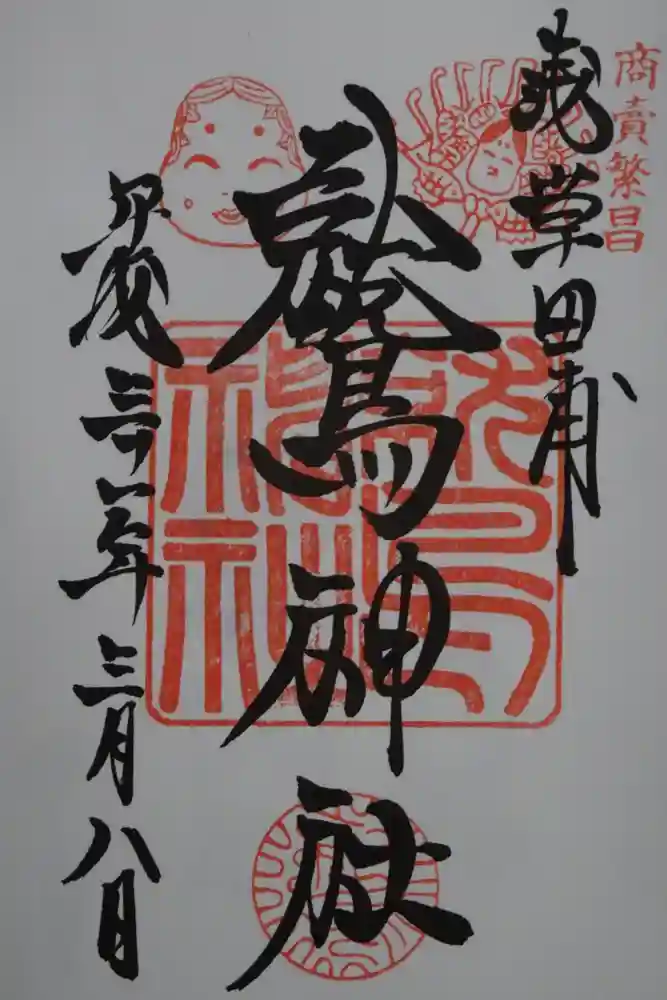 商賣繁昌
浅草田甫
鷲神社
平成三十一年三月八日
鷲神社